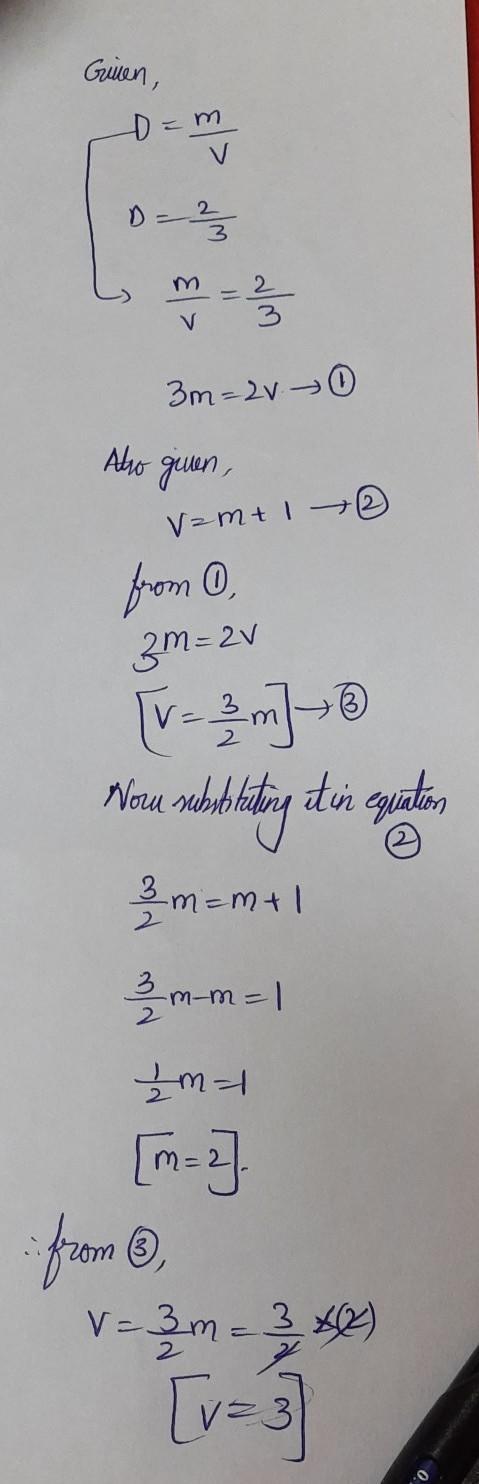 Given,
D = m/v
D = 2/3
m/v = 2/3
3m = 2v → ①
Also given,
v = m + 1 → ②
from ①,
3m = 2v
[v = 3/2 m] → ③
Now substituting it in equation
②
3/2 m = m + 1
3/2 m - m = 1
1/2 m = 1
[m = 2].
∴ from ③,
v = 3/2 m = 3/2 × (2)
[v = 3]